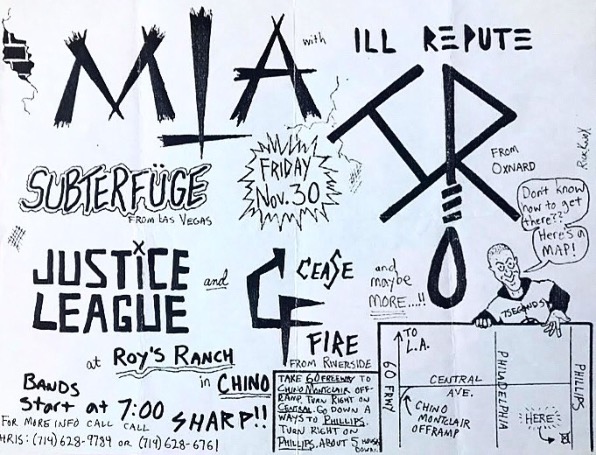 MIA
with
ILL REPUTE
IR
FROM
OXNARD
FRIDAY
Nov. 30
SUBTERFÜGE
FROM LAS VEGAS
Don't know
how to get
there??
Here's a
MAP!
JUSTICE
LEAGUE
and
CF
CEASE
FIRE
FROM RIVERSIDE
and
maybe
MORE...!!
7SECONDS
at ROY'S RANCH
in CHINO
BANDS
Start at 7:00
SHARP!!
FOR MORE INFO CALL CALL
HRIS: (714) 628-9784 or (714) 628-6761
TAKE 60 FREEWAY TO
CHINO MONTCLAIR OFF-
RAMP. TURN RIGHT ON
CENTRAL. GO DOWN A
WAYS TO PHILLIPS.
TURN RIGHT ON
PHILLIPS. ABOUT 5 HOUSES
DOWN.
TO
L.A.
60 FRWY
CENTRAL
AVE.
CHINO
MONTCLAIR
OFFRAMP
PHILADELPHIA
PHILLIPS
HERE